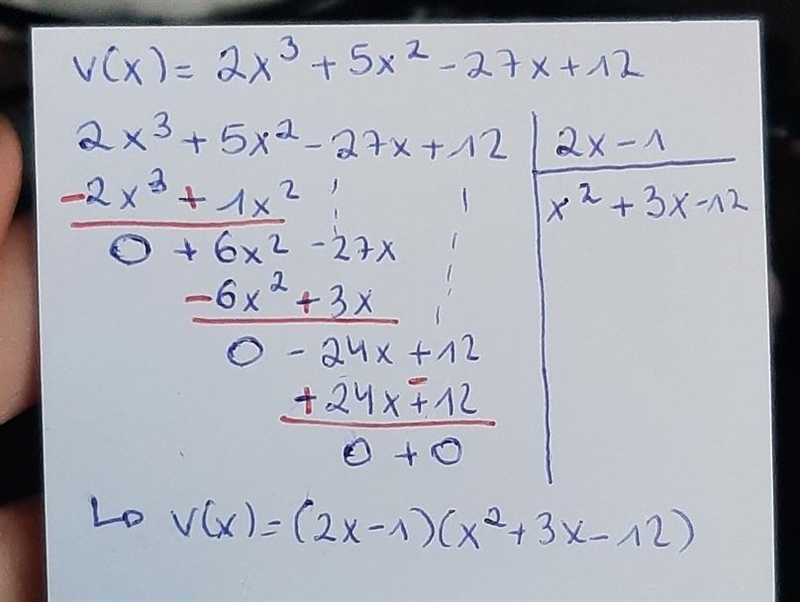 v(x) = 2x³ + 5x² - 27x + 12
2x³ + 5x² - 27x + 12 | 2x - 1
-2x³ + 1x² | x² + 3x - 12
0 + 6x² - 27x
-6x² + 3x
0 - 24x + 12
+24x - 12
0 + 0
↳ v(x) = (2x-1)(x² + 3x - 12)